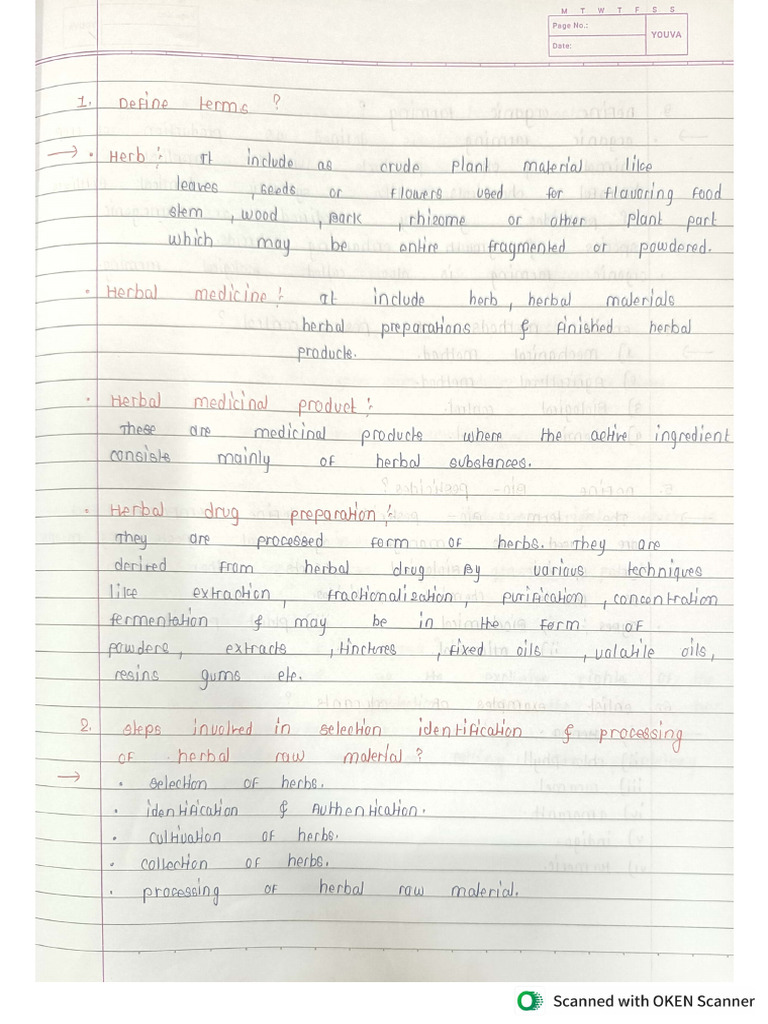 M T W T F S S
Page No.:
Date:
YOUVA
1. Define terms ?
→ • Herb : It include as crude plant material like
leaves , seeds or flowers used for flavoring food
stem , wood , bark , rhizome or other plant part
which may be entire fragmented or powdered.
• Herbal medicine : It include herb , herbal materials
herbal preparations & finished herbal
products.
• Herbal medicinal product :
These are medicinal products where the active ingredient
consists mainly of herbal substances.
• Herbal drug preparation :
They are processed form of herbs. They are
derived from herbal drug By various techniques
like extraction , fractionalization , purification , concentration
fermentation & may be in the form of
powders , extracts , tinctures , fixed oils , volatile oils ,
resins gums etc.
2. Steps involved in selection identification & processing
of herbal raw material ?
→ • selection of herbs.
• identification & Authentication.
• cultivation of herbs.
• collection of herbs.
• processing of herbal raw material.
Scanned with OKEN Scanner